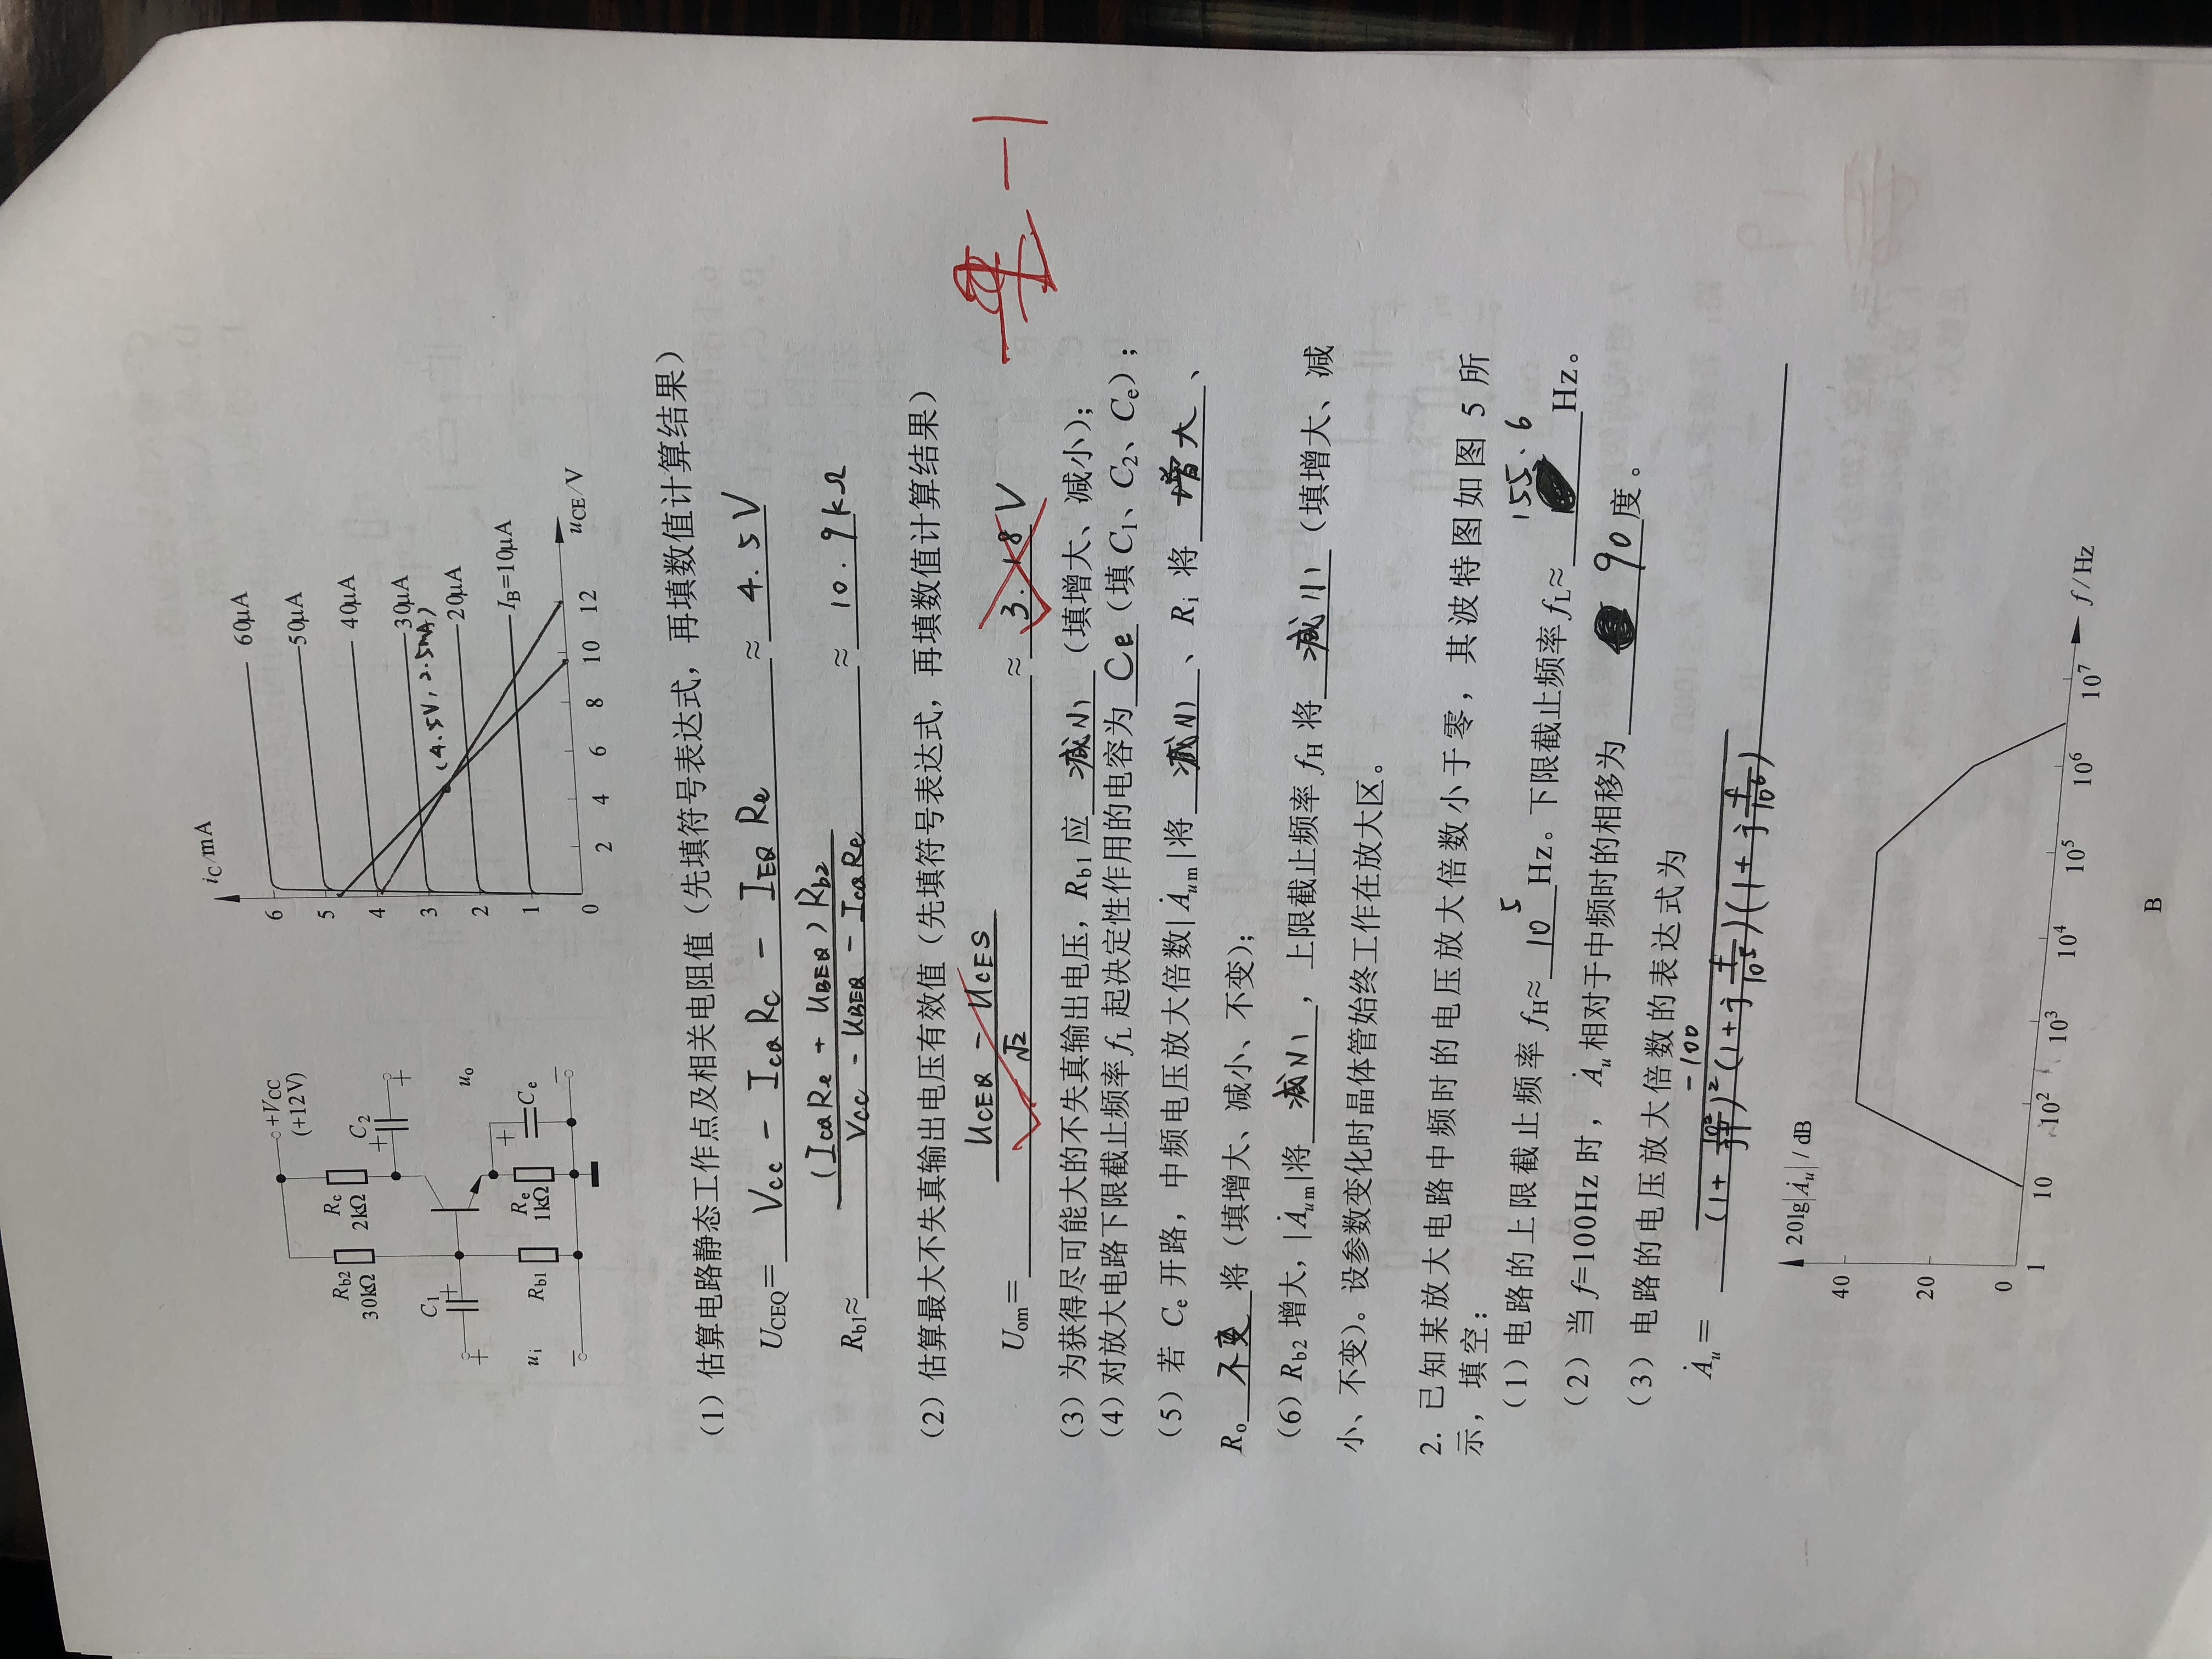 iC/mA
60μA
50μA
40μA
30μA
20μA
IB=10μA
6
5
4
3
2
1
0
2 4 6 8 10 12
uCE/V
(4.5V, 2.5mA)
+VCC
(+12V)
Rb2
30kΩ
Rc
2kΩ
C2
+
+
C1
+
+
uo
ui
Rb1
Re
1kΩ
+
Ce
−
−
(1)估算电路静态工作点及相关电阻值(先填符号表达式,再填数值计算结果)
UCEQ= Vcc - ICQ Rc - IEQ Re ≈ 4.5V
Rb1≈ (ICQRe + UBEQ) Rb2 / Vcc - UBEQ - ICQRe ≈ 10.9kΩ
(2)估算最大不失真输出电压有效值(先填符号表达式,再填数值计算结果)
Uom= UCEQ - UCES / √2 ≈ 3.18V
-1
(3)为获得尽可能大的不失真输出电压,Rb1应 减小 (填增大、减小);
(4)对放大电路下限截止频率fL起决定性作用的电容为 Ce (填C1、C2、Ce);
(5)若 Ce 开路,中频电压放大倍数|Ȧum|将 减小 、Ri 将 增大 、
Ro 不变 将(填增大、减小、不变);
(6)Rb2 增大,|Ȧum|将 减小 ,上限截止频率 fH 将 减小 (填增大、减
小、不变)。设参数变化时晶体管始终工作在放大区。
2. 已知某放大电路中频时的电压放大倍数小于零,其波特图如图 5 所
示,填空:
(1)电路的上限截止频率 fH≈ 10^5 Hz。下限截止频率 fL≈ 155.6 Hz。
(2)当 f=100Hz 时,Ȧu 相对于中频时的相移为 90 度。
(3)电路的电压放大倍数的表达式为
Ȧu = -100 / (1+ 10²/jf)² (1+j f/10⁵)(1+j f/10⁶)
20lg|Ȧu| / dB
40
20
0
1 10 10² 10³ 10⁴ 10⁵ 10⁶ 10⁷ f/Hz
B